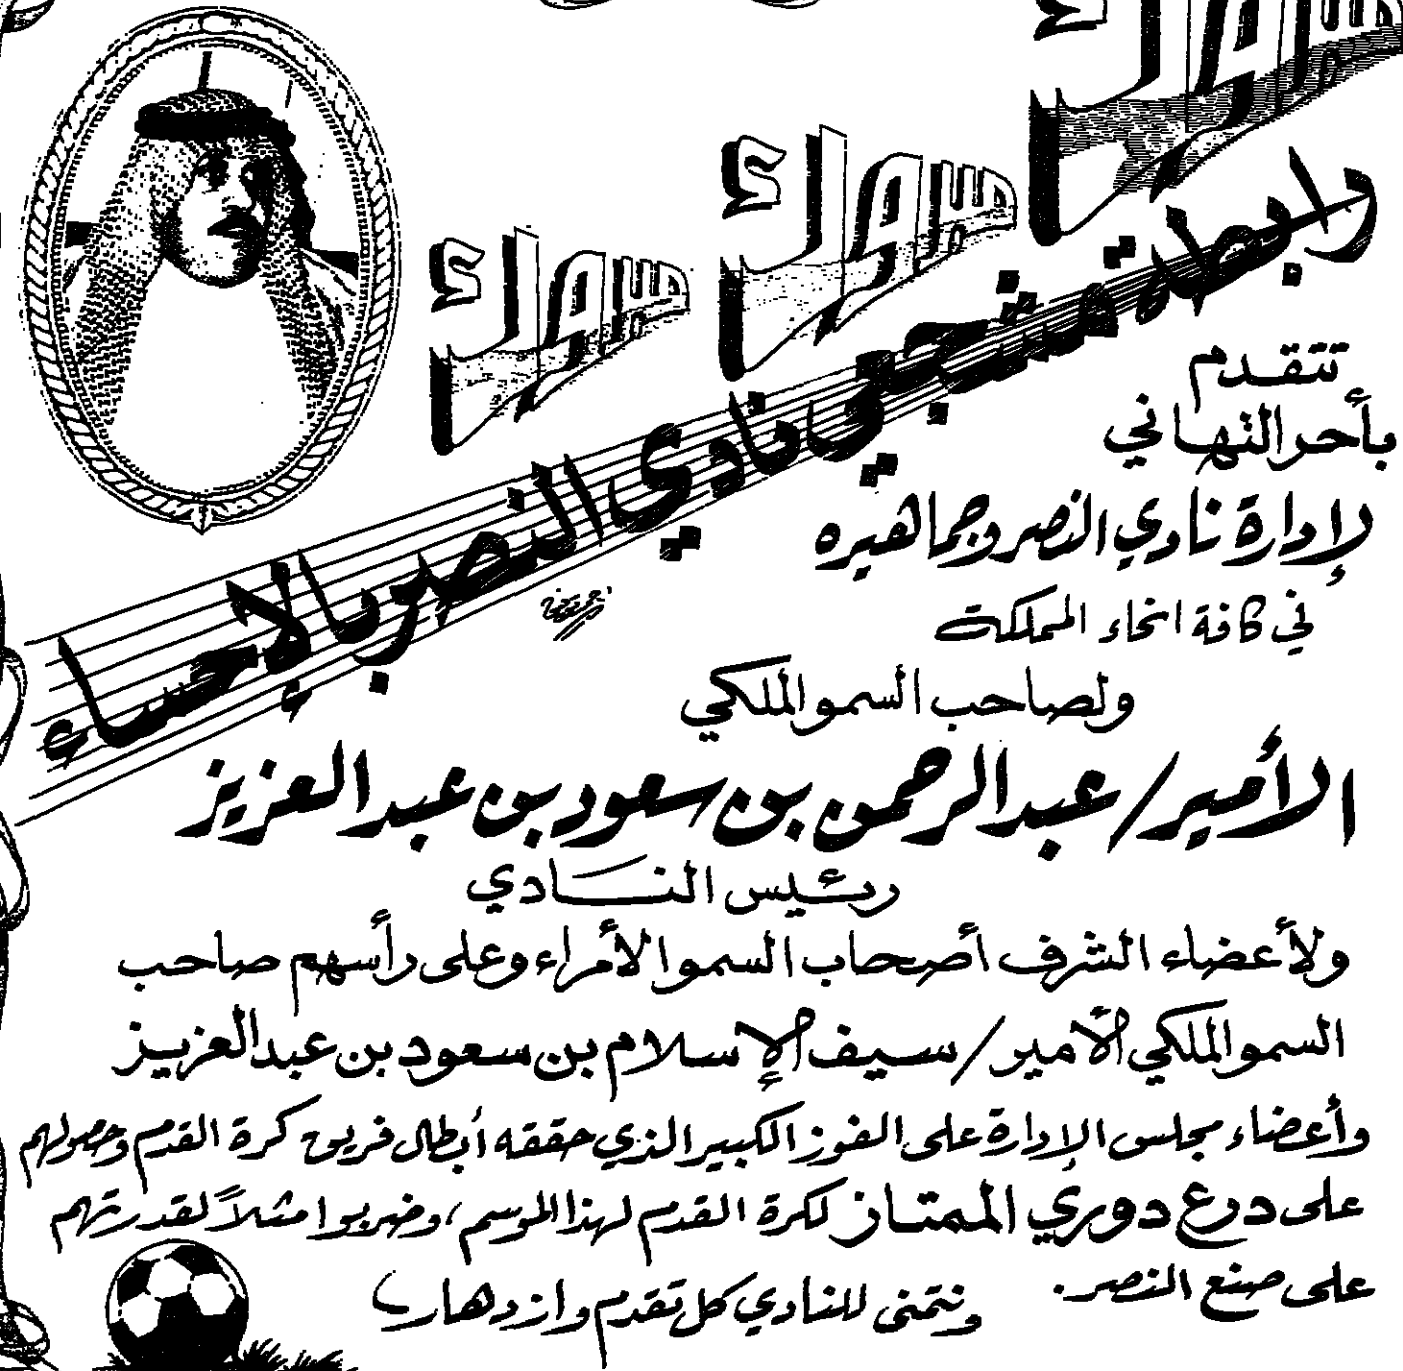 مبروك
مبروك
مبروك
رابطة مشجعي نادي النصر بالإحساء
تتقدم
بأحر التهاني
لإدارة نادي النصر وجماهيره
في كافة انحاء المملكة
ولصاحب السمو الملكي
الأمير/ عبدالرحمن بن سعود بن عبدالعزيز
رئيس النادي
ولأعضاء الشرف أصحاب السمو الأمراء وعلى رأسهم صاحب
السمو الملكي الأمير/ سيف الإسلام بن سعود بن عبدالعزيز
وأعضاء مجلس الإدارة على الفوز الكبير الذي حققه أبطال فريق كرة القدم وحصولهم
على درع دوري الممتاز لكرة القدم لهذا الموسم، وضربوا مثلاً لقدرتهم
على صنع النصر. ونتمنى للنادي كل تقدم وازدهار